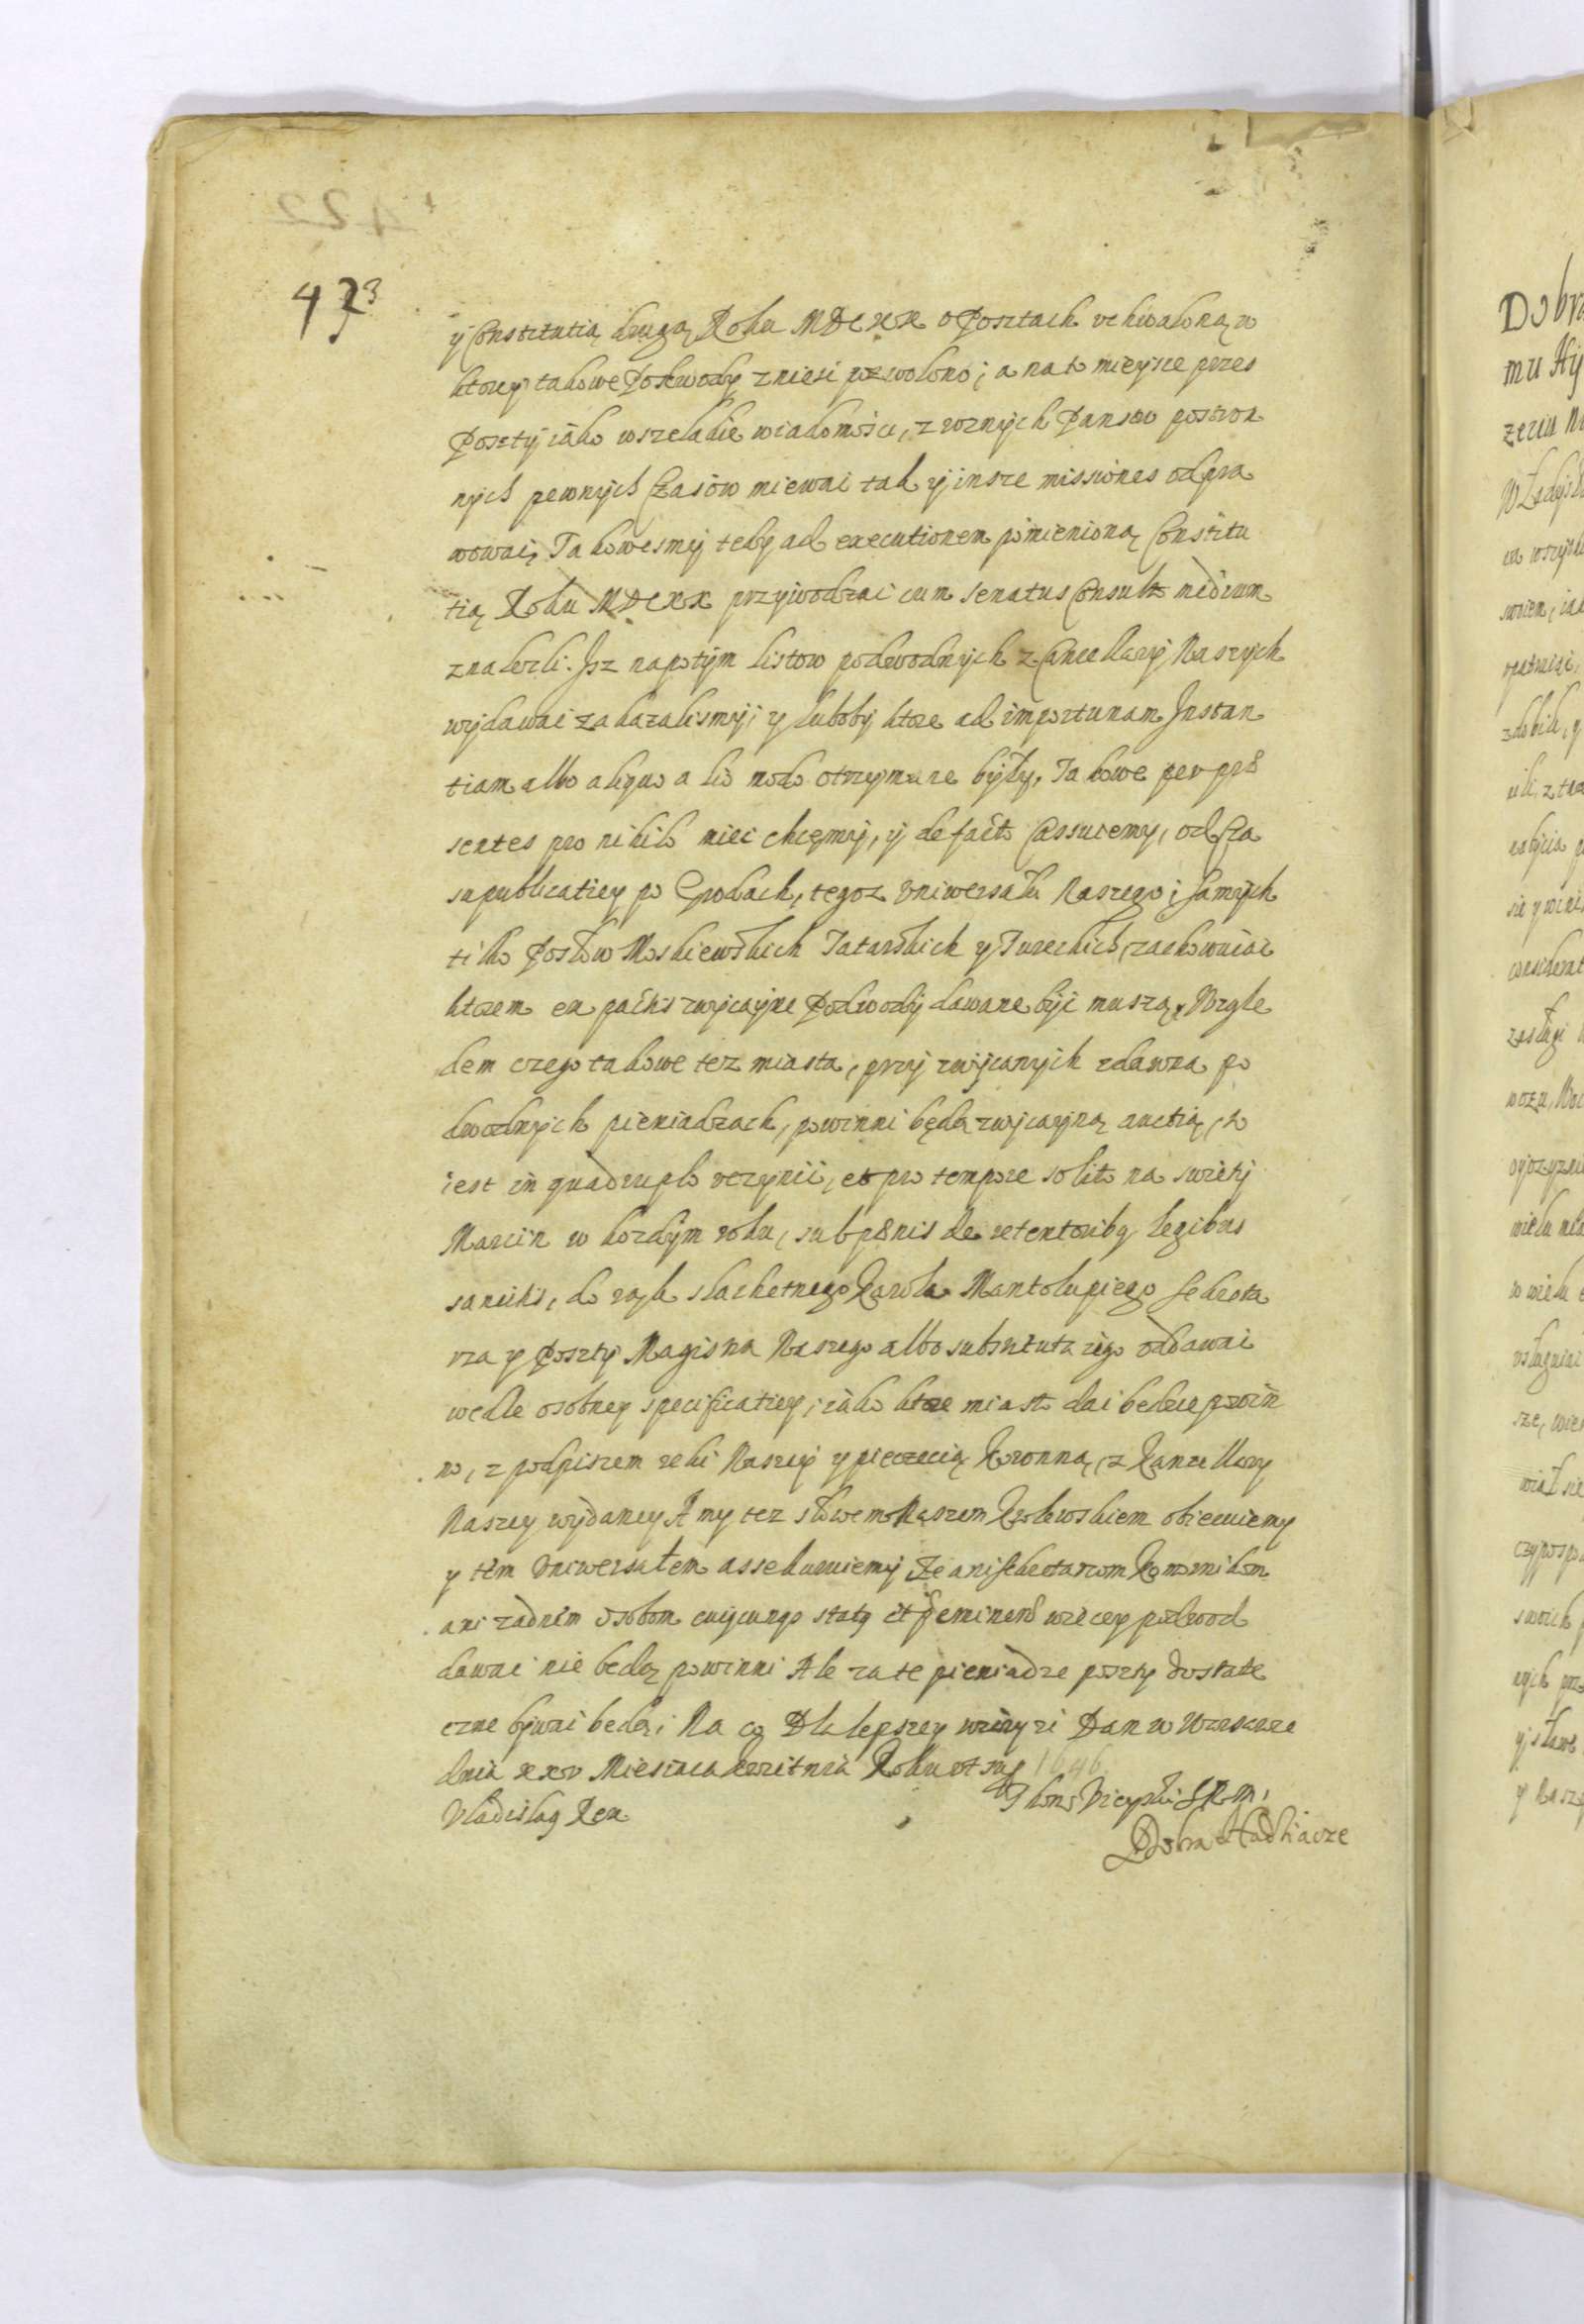 423
y Constitutią drugą Roku MDCXX o Posztach vchwaloną w
ktorey takowe Podwody zniesc pozwolono; a na to mieysce przes
Poszty iako wszelakie wiadomosci, z roznych Panstw postron
nych pewnych Czasow miewac tak y insze missiones odpra
wowac, Takowesmy teby ad executionem pomienioną Constitu
tią Roku MDCXX przywodzac cum Senatus Consulto medium
znalezli. Isz napotym listow podwodnych z Cancellary Naszych
wydawac zakazalismy; y luboby ktore ad importunam Instan
tiam albo aliquo alio modo otrzymane były, Takowe per præ
sentes pro nihilo miec chcemy, y de facto Cassuiemy, od Cza
su publicatiey po Grodach, tegoz Vniwersału Naszego; samych
tilko Posłow Moskiewskich Tatarskich y Tureckich, zachowuiac
ktorem ex pactis zwycayne Podwody dawane byc muszą, Wzgle
dem czego takowe tez miasta, przy zwycanych zdawna po
dwodnych pieniadzach, powinni będą zwycayną auctią, to
iest in quadruplo vczynic, et pro tempore solito na swiety
Marcin w kozdym roku, sub pœnis de retentoribq legibus
sancitis, do rąk slachetnego Karola Mantolupiego Sekreta
rza y Poszty Magistra Naszego albo substituta iego oddawac
wedle osobney specificatiey, iako ktore miasto dac bedzie powin
no, z podpisem reki Naszey y pieczecią Koronną, z Kanzellary
Naszey wydaney A my tez słowem Naszem Krolewskiem obiecuiemy
y tem Vniwersałem assekuruiemy, ze ani Sekretarzom Komornikom
ani zadnem osobom cuiuscunqe statq et præeminentiæ wiecey podwod
dawac nie bedą powinni Ale za te pieniadze poszty dostate
czne bywac bedą; Na co Dla lepszey wiary Dan w Warszawie
dnia xxv Miesiaca kwitnia Roku vt supra 1646
Vladislaq Rex
Dobra Hadziacze